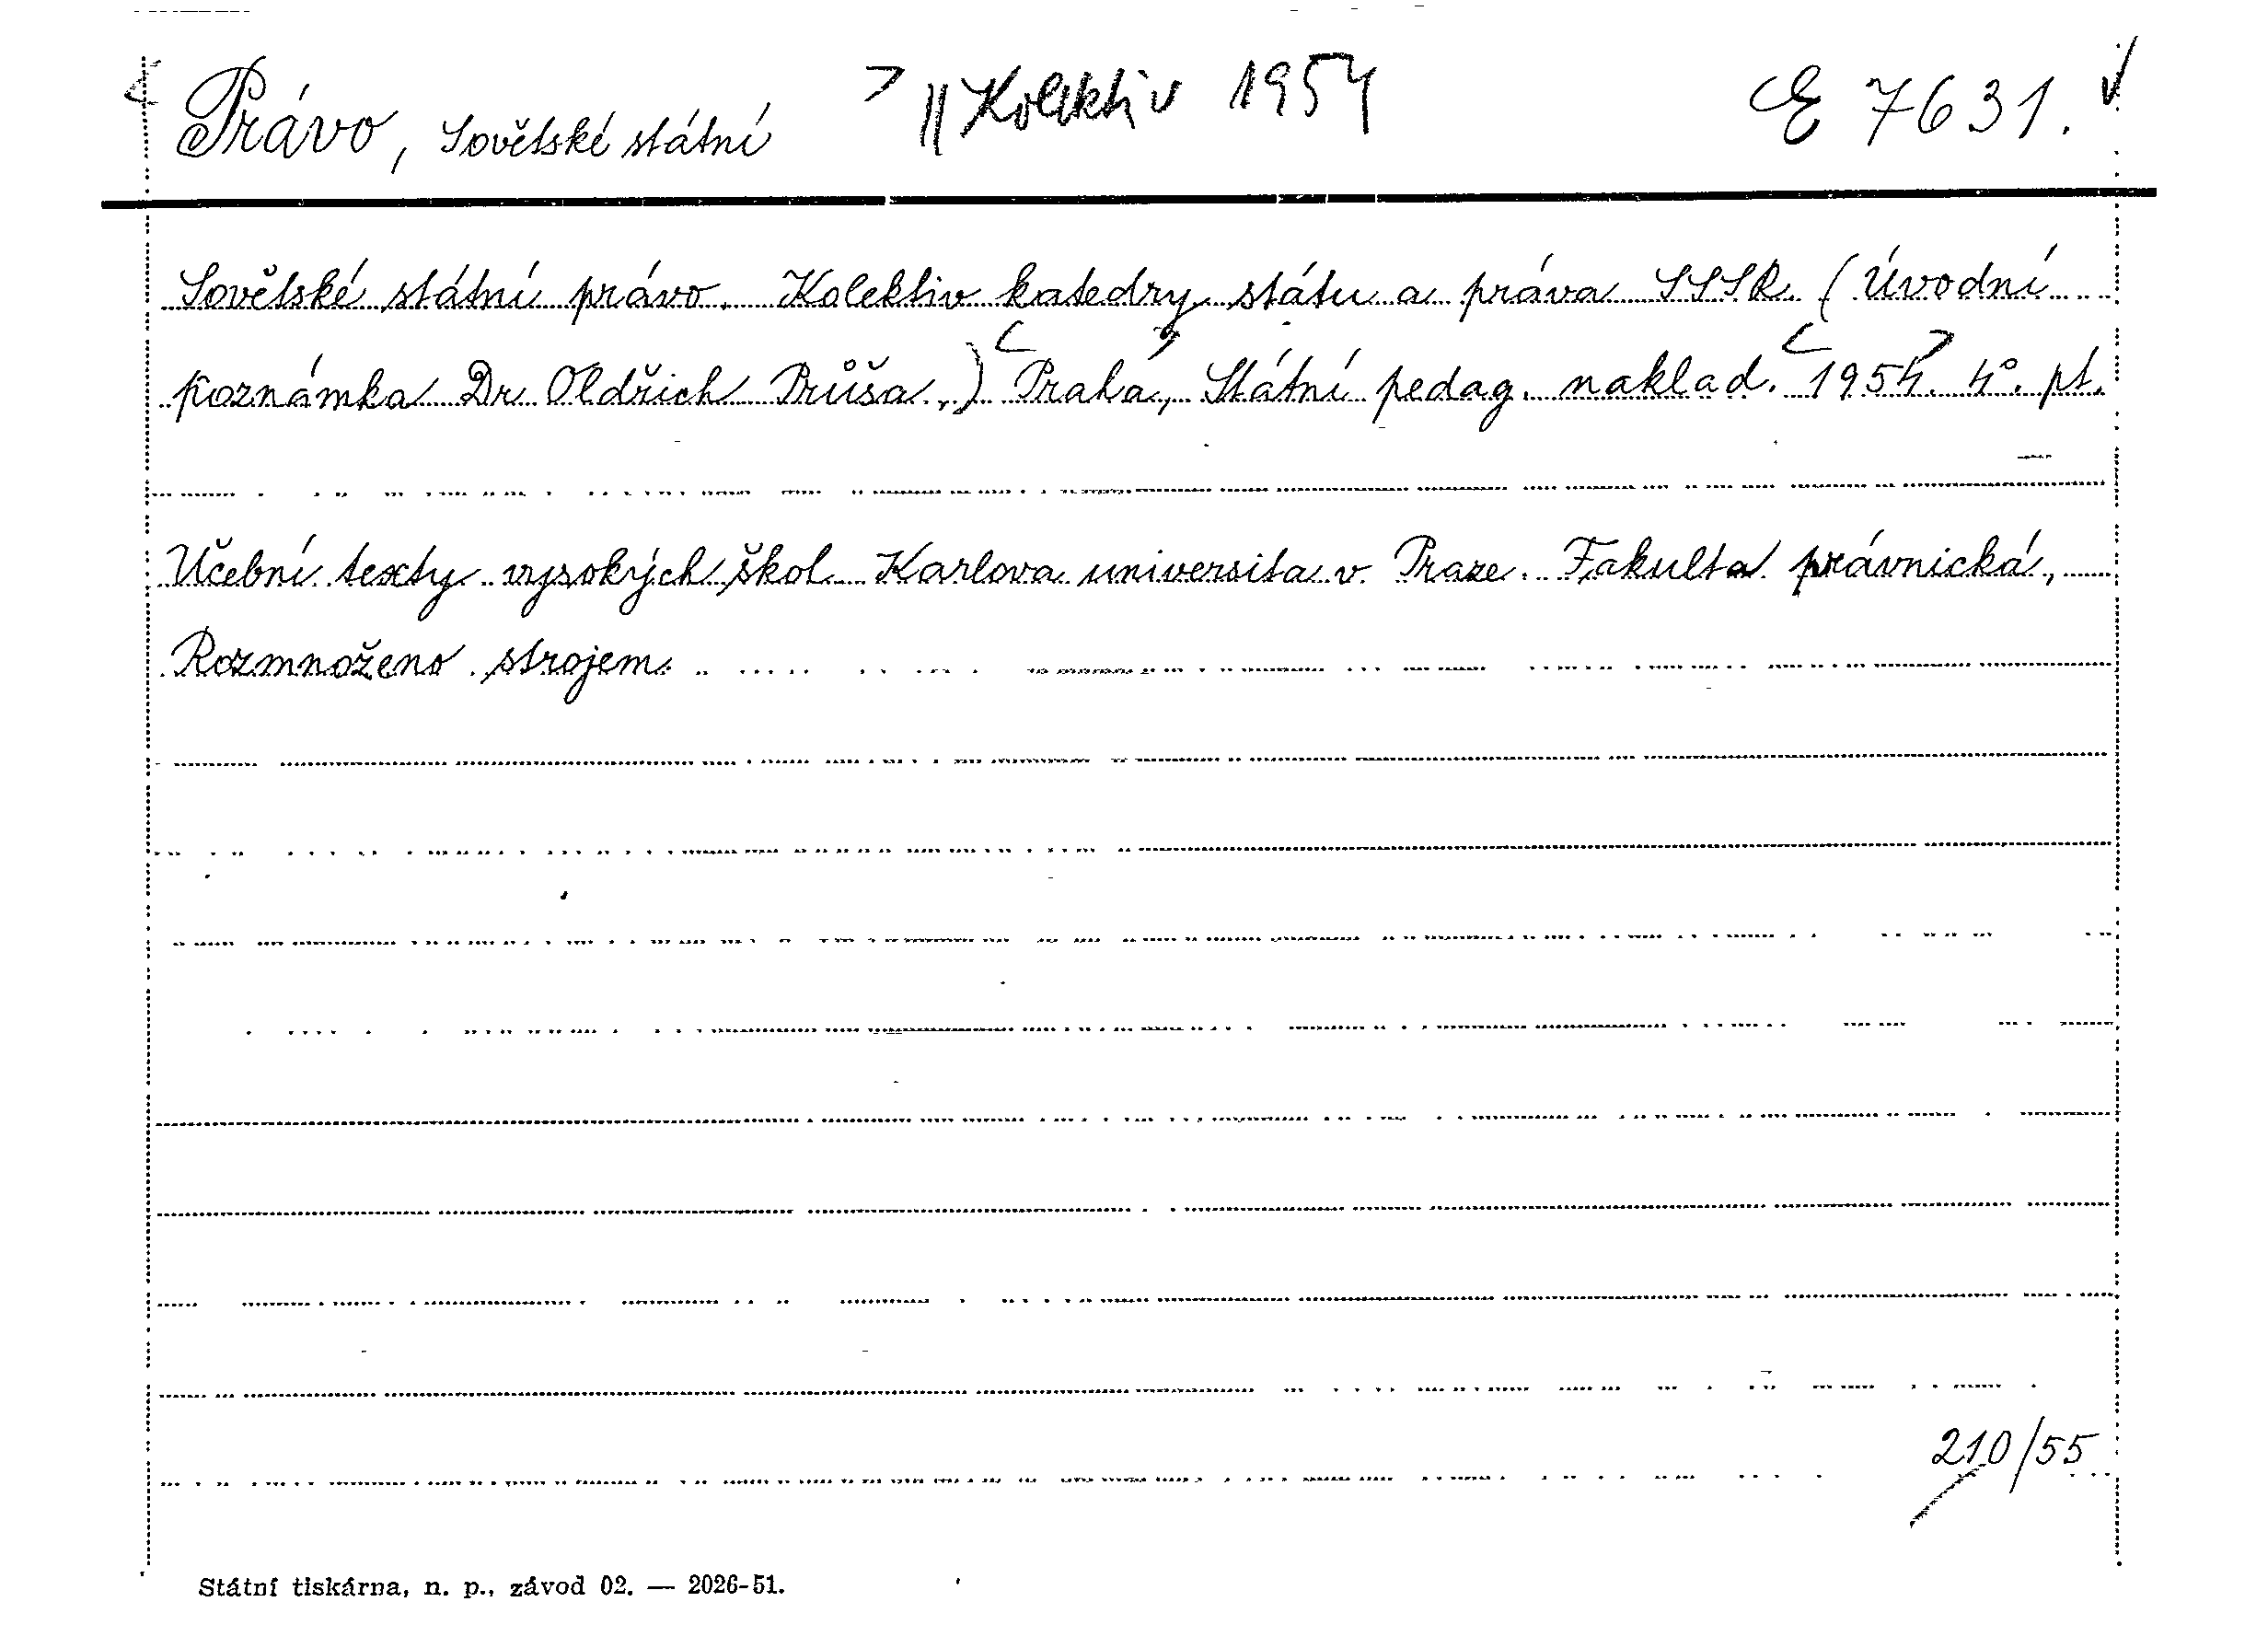 Právo, Sovětské státní || Kolektiv 1954 E 7631.
Sovětské státní právo. Kolektiv katedry státu a práva SSSR. (Úvodní
poznámka Dr Oldřich Průša.,) Praha, Státní pedag. naklad. 1954. 4°. pt.
Učební texty vysokých škol Karlova universita v Praze. Fakulta právnická,
Rozmnoženo strojem.
210/55
Státní tiskárna, n. p., závod 02. — 2026-51.